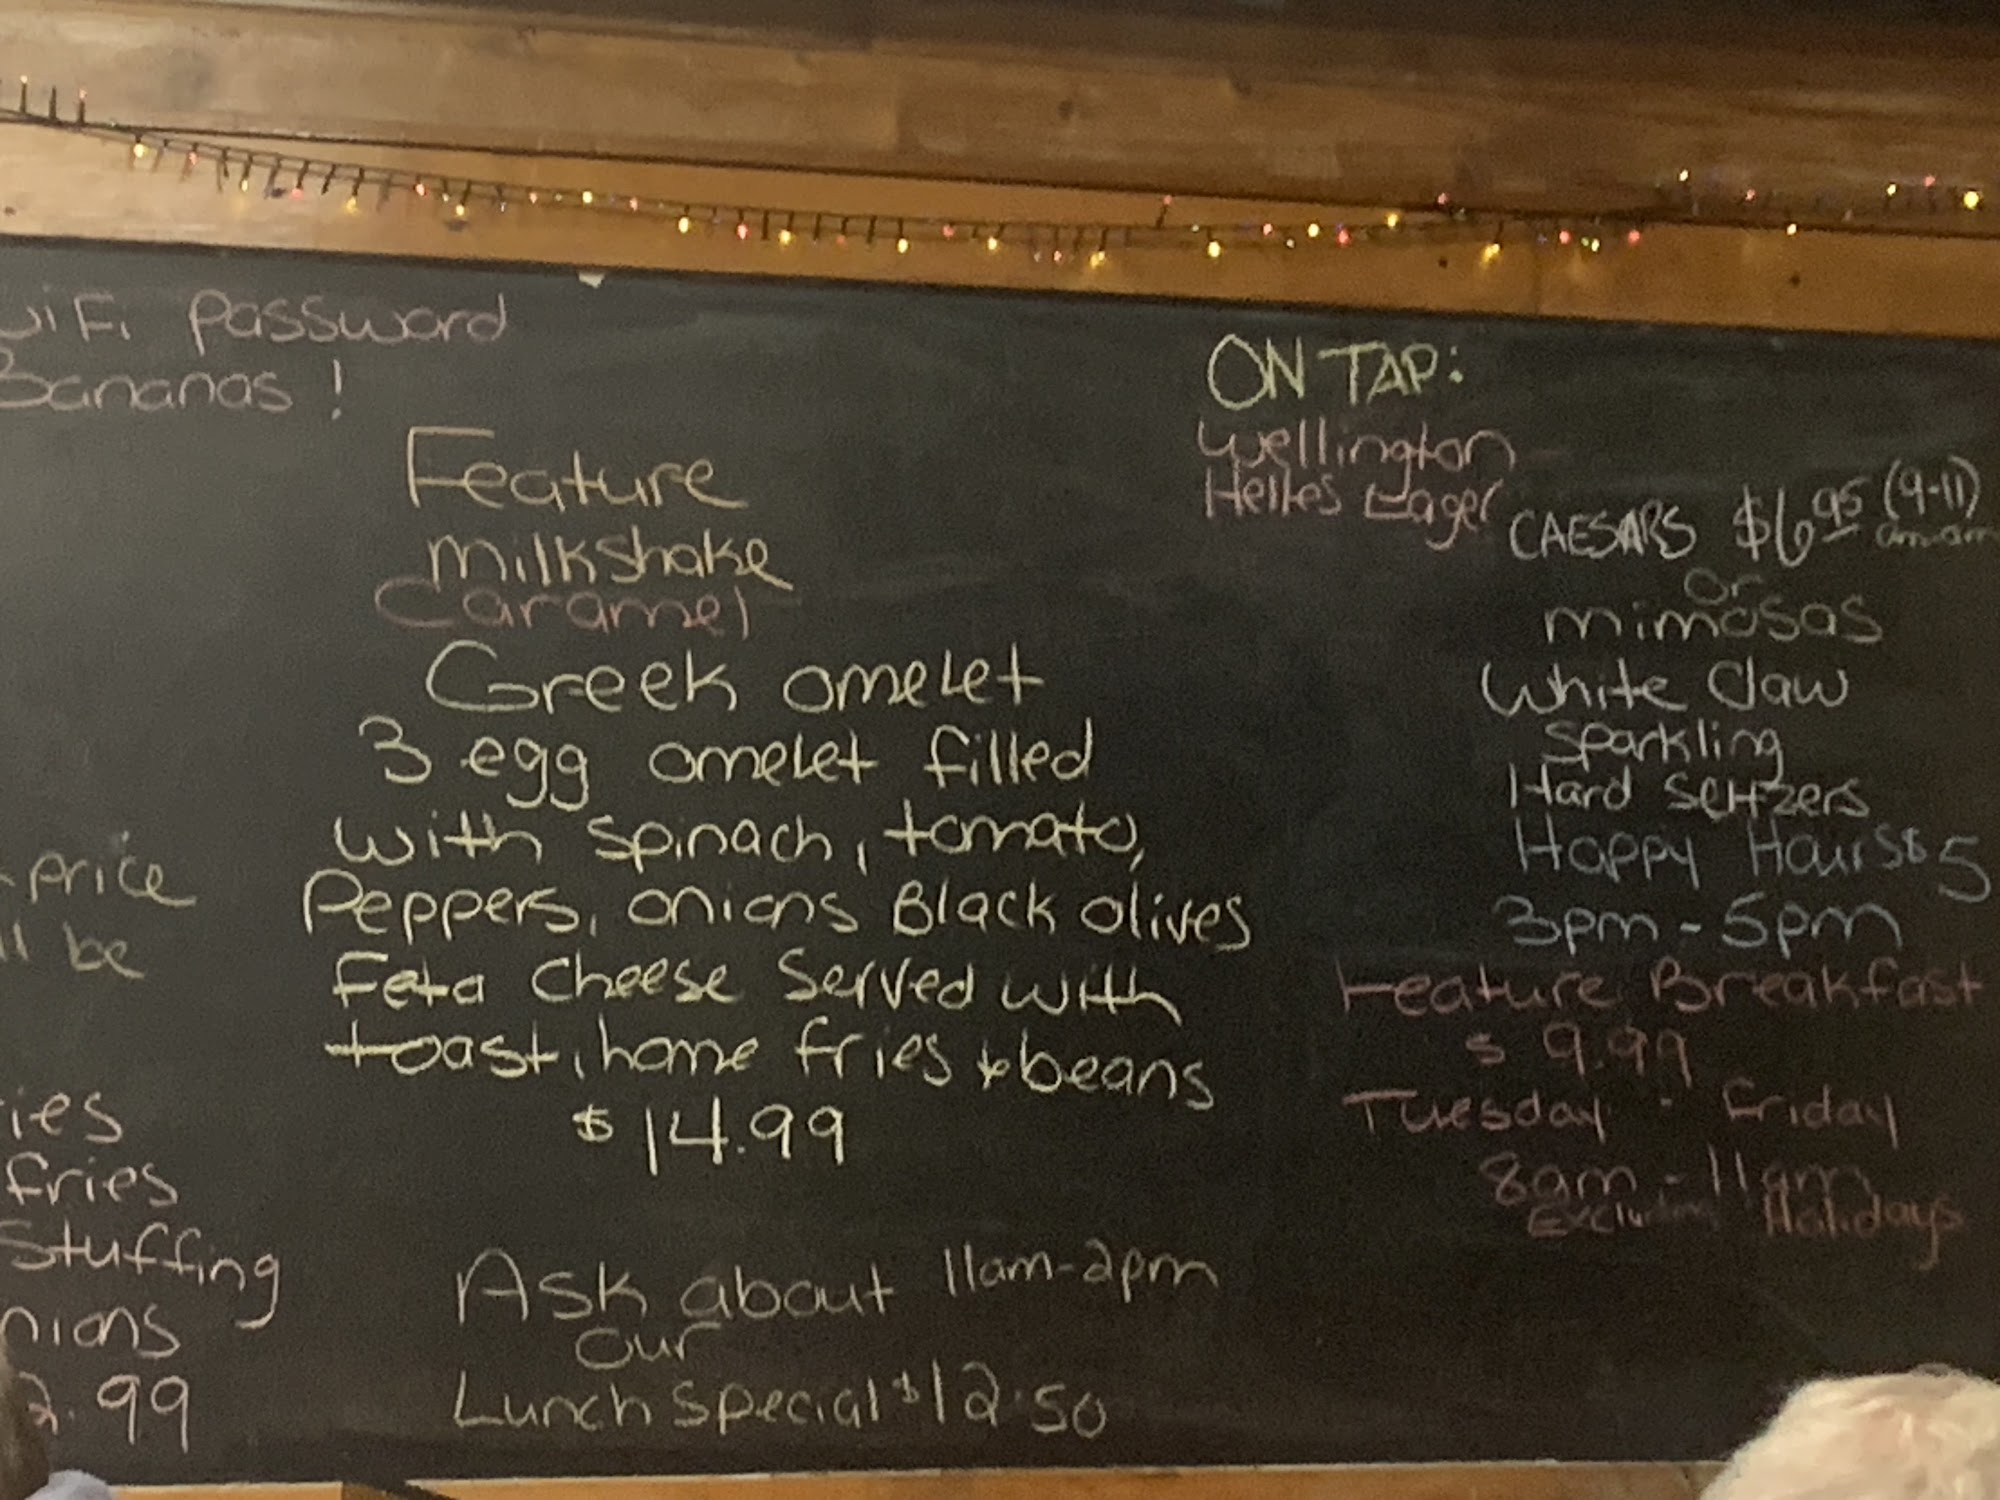 WiFi Password
Bananas!
Feature
milkshake
Caramel
Greek omelet
3 egg omelet filled
with spinach, tomato,
Peppers, onions Black olives
Feta cheese Served with
toast, home fries & beans
$14.99
Ask about 11am-2pm
our
Lunch special $12.50
price
ll be
ies
fries
Stuffing
nions
2.99
ON TAP:
Wellington
Helles Lager
CAESARS $6.95 (9-11)
am am
or
mimosas
White Claw
Sparkling
Hard Seltzers
Happy Hour $5
3pm - 5pm
Feature Breakfast
$9.99
Tuesday - Friday
8am - 11am
Excluding Holidays